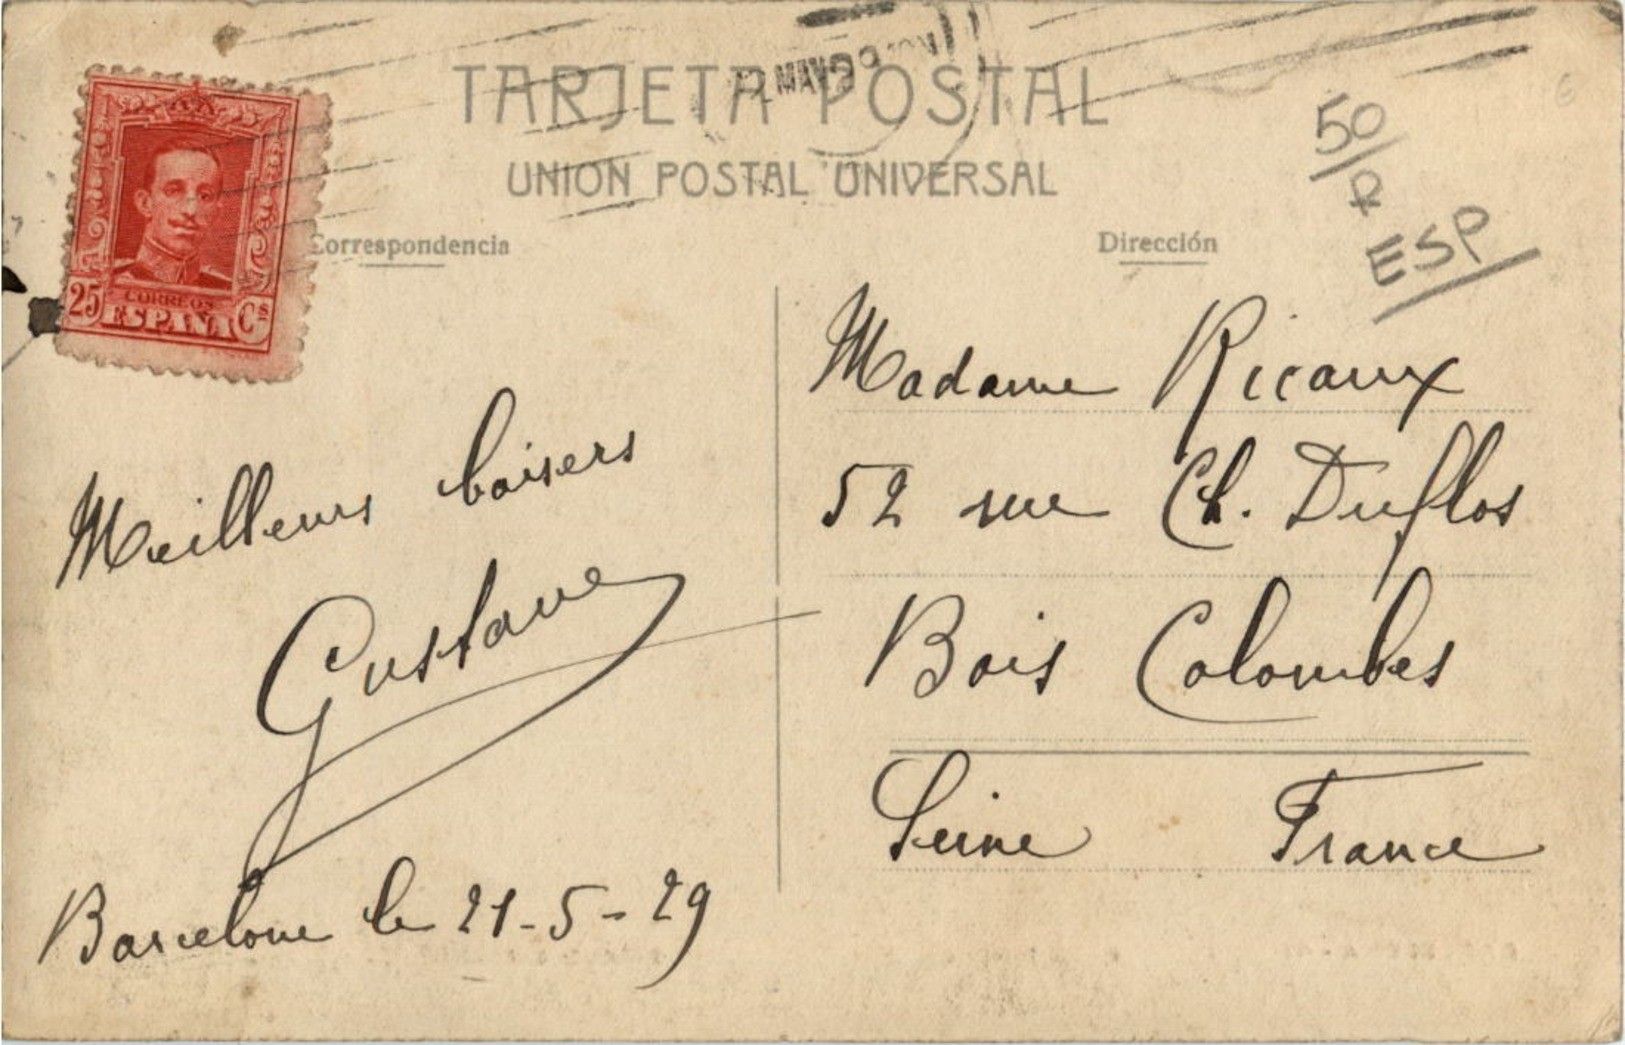 TARJETA POSTAL
UNION POSTAL UNIVERSAL
MAY
Correspondencia
Dirección
50
ESP
25 CORREOS Cs
ESPAÑA
Meilleurs baisers
Gustave
Barcelone le 21-5-29
Madame Ricaux
52 rue Ch. Duflos
Bois Colombes
Seine France